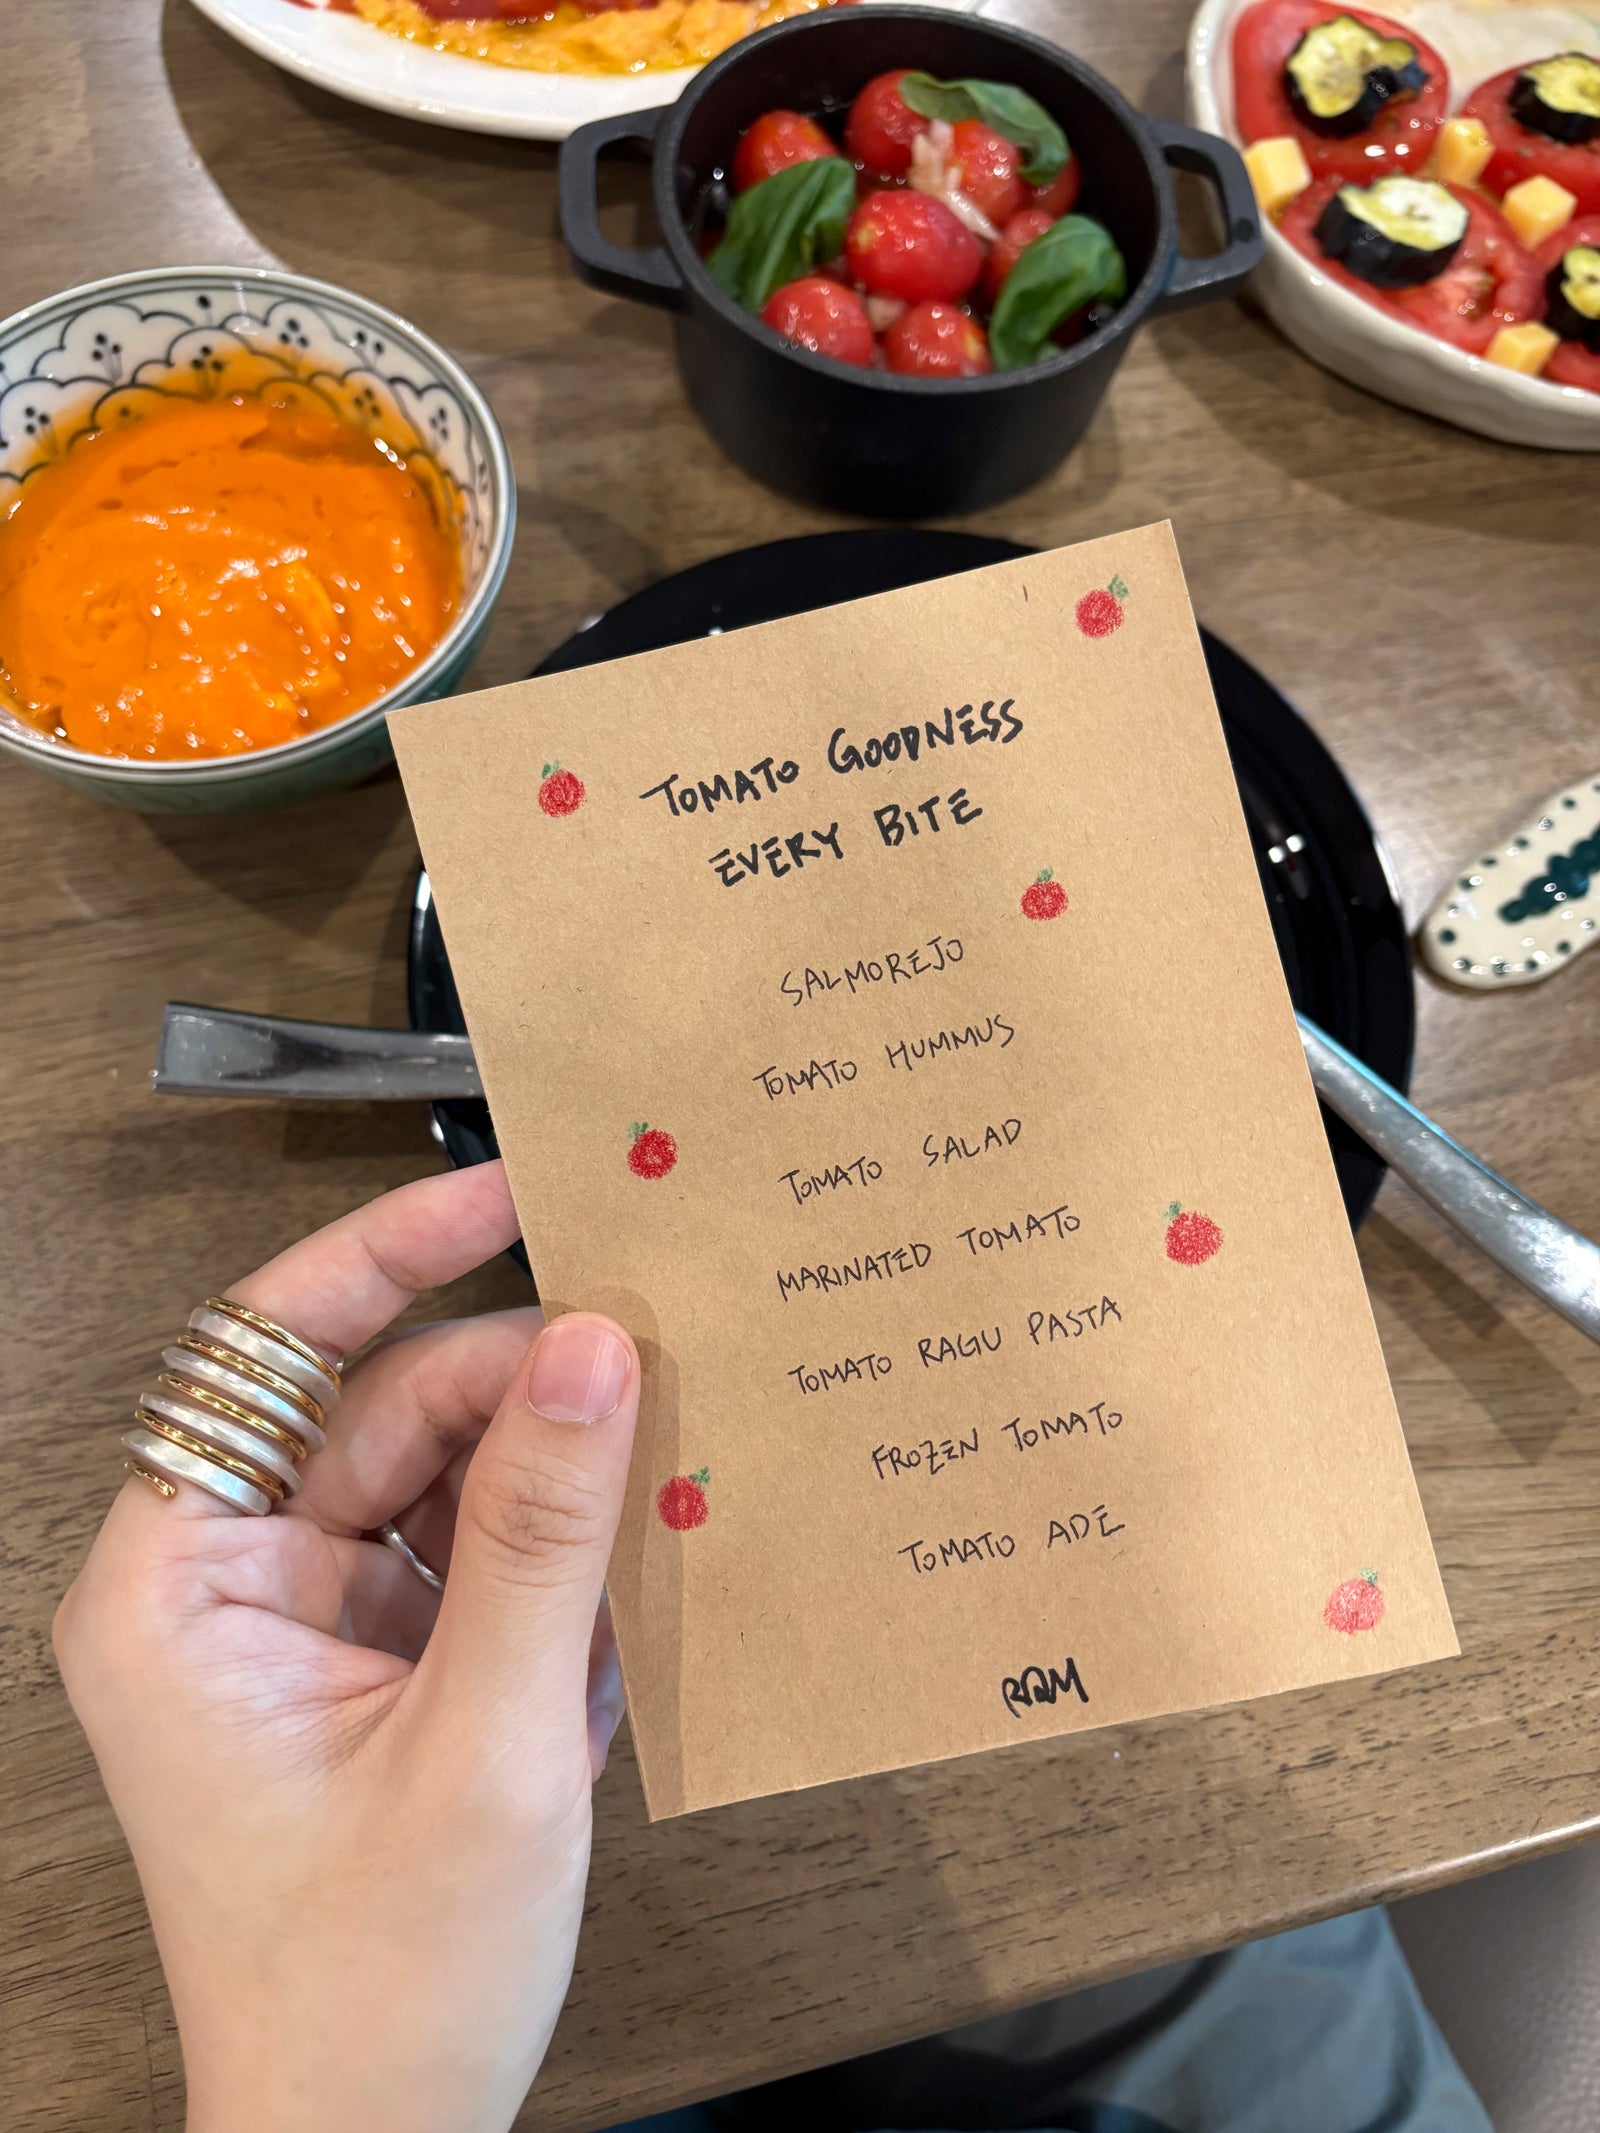 TOMATO GOODNESS
EVERY BITE
SALMOREJO
TOMATO HUMMUS
TOMATO SALAD
MARINATED TOMATO
TOMATO RAGU PASTA
FROZEN TOMATO
TOMATO ADE